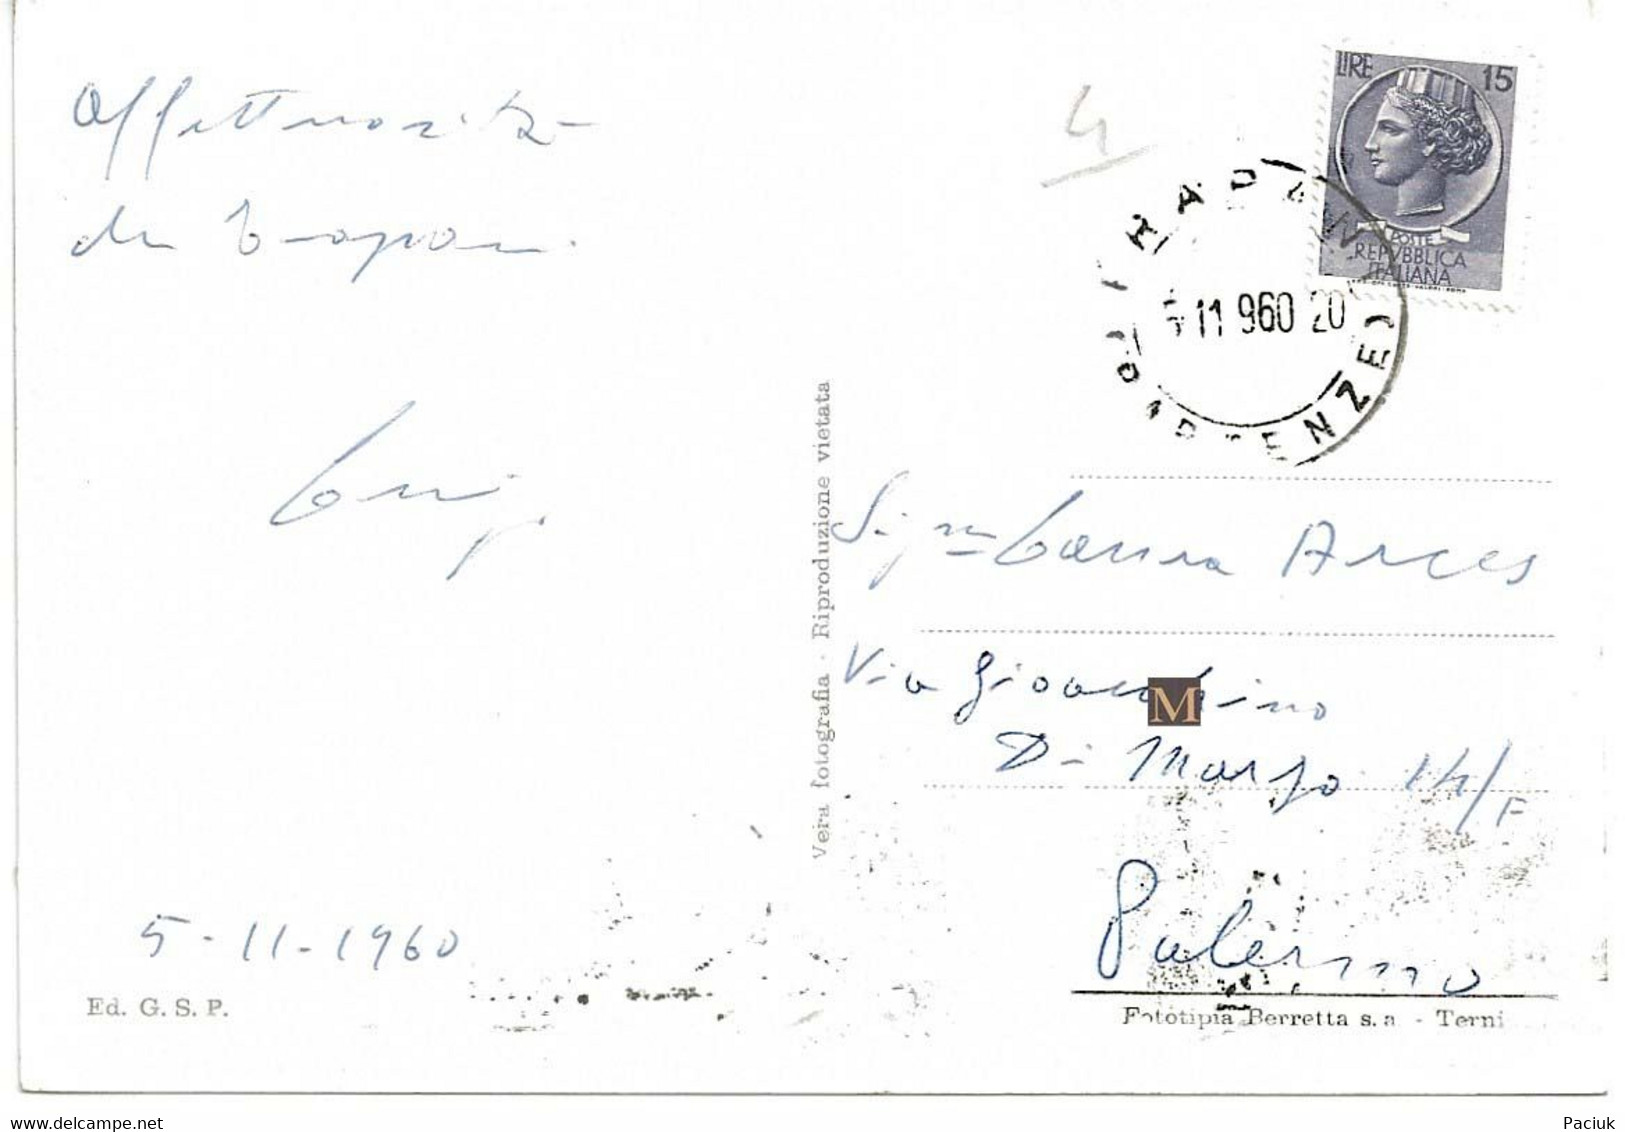 Affettuosità
da Trapani
Luigi
5-11-1960
Ed. G. S. P.
Vera fotografia - Riproduzione vietata
4
LIRE 15
POSTE
REPVBBLICA
ITALIANA
TRAPANI
11 960 20
PARTENZE
Sig.na Laura Arces
Via Gioacchino
Di Marzo 14/F
Palermo
Fototipia Berretta s.a - Terni
M
delcampe.net
Paciuk